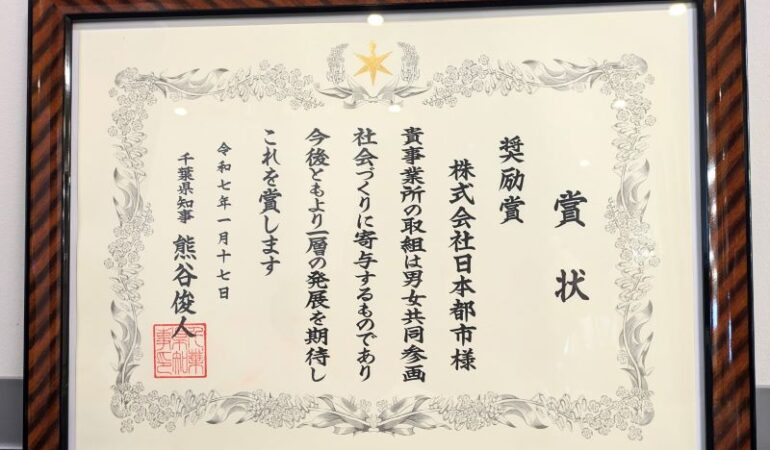 賞状
奨励賞
株式会社日本都市様
貴事業所の取組は男女共同参画
社会づくりに寄与するものであり
今後ともより一層の発展を期待し
これを賞します
令和七年一月十七日
千葉県知事 熊谷俊人
千葉県知事印